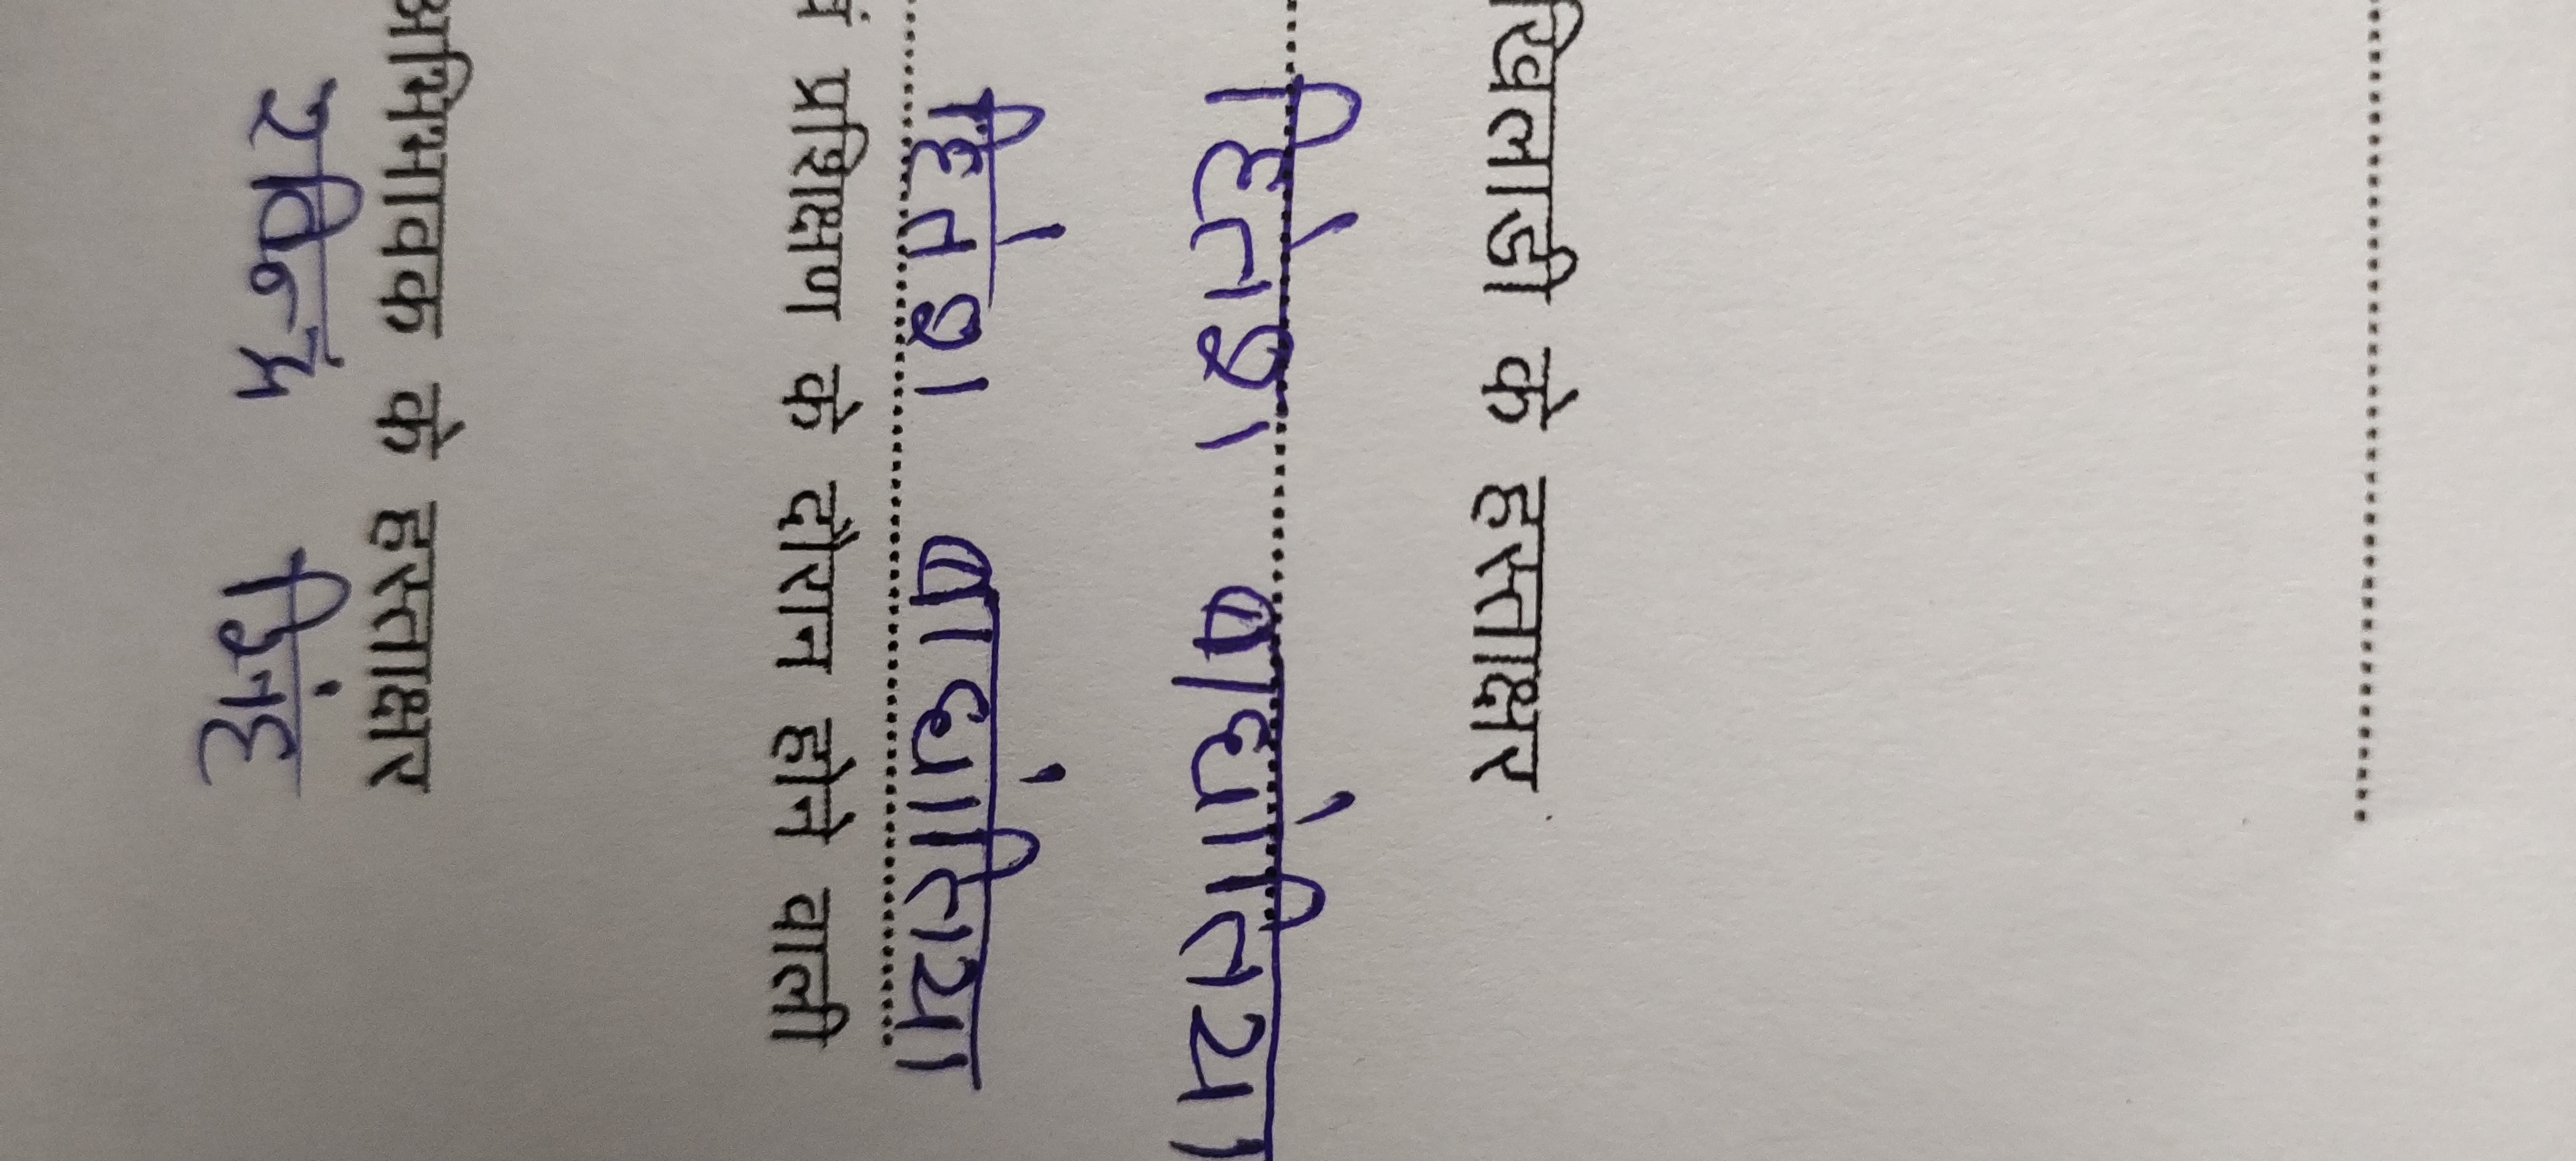 खिलाडी के हस्ताक्षर
हितेश बाघोतिया
हितेश बाघोतिया
प्रशिक्षण के दौरान होने वाली
अभिभावक के हस्ताक्षर
रविन्द्र सिंह